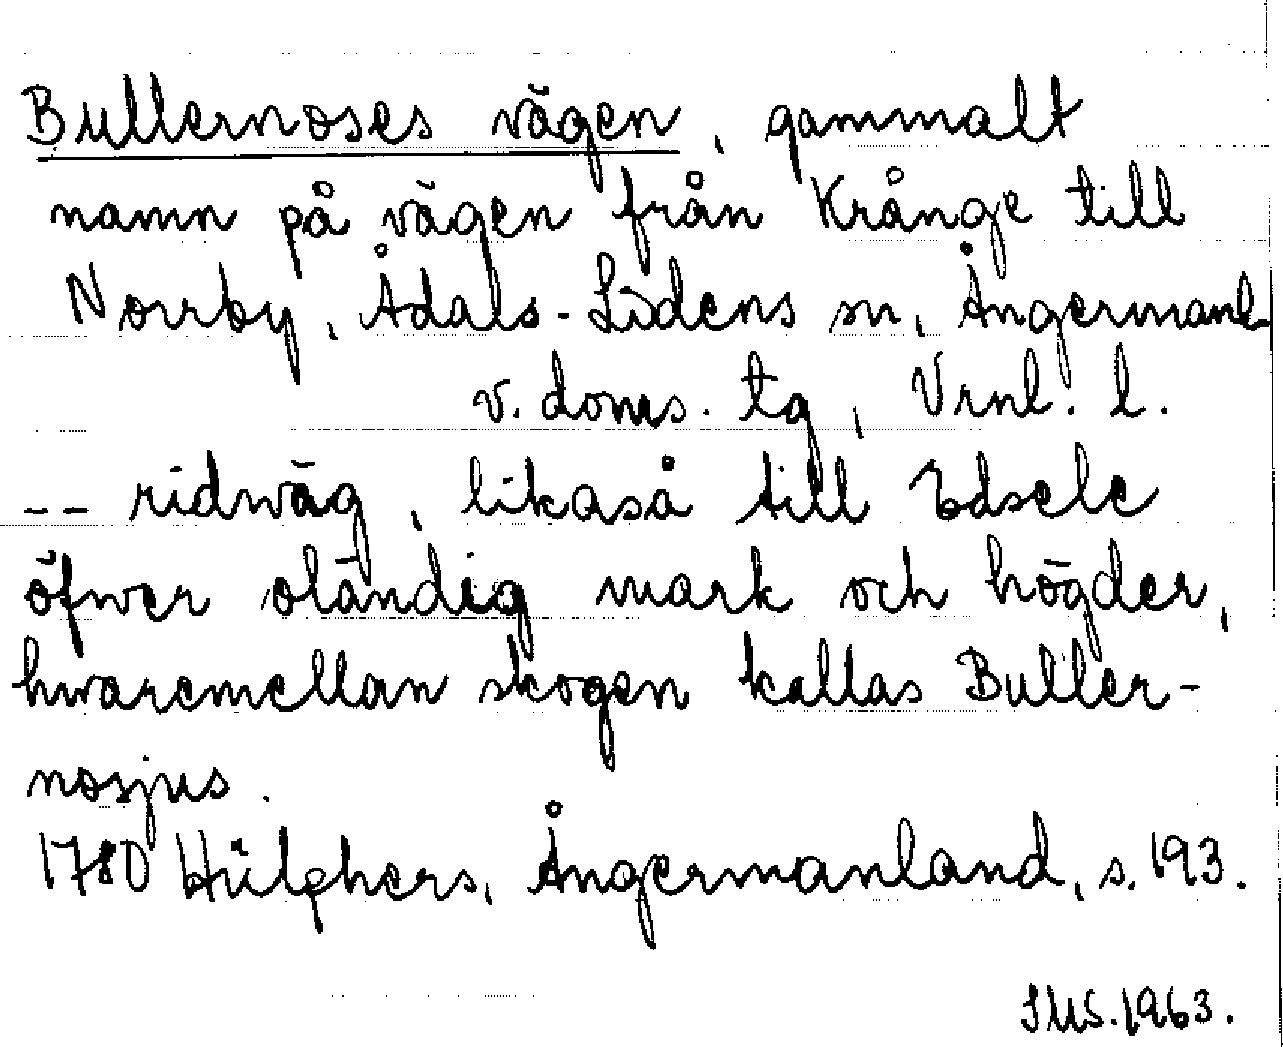 Bullernoses vägen, gammalt
namn på vägen från Krånge till
Norrby, Ådals-Lidens sn, Ångermanl.
v. doms. tg, Vrnl. l.
-- ridwäg, likaså till Edsele
öfwer oländig mark och högder,
hwaremellan skogen kallas Buller-
nosjus.
1780 Hülphers, Ångermanland, s. 193.
SMS. 1963.